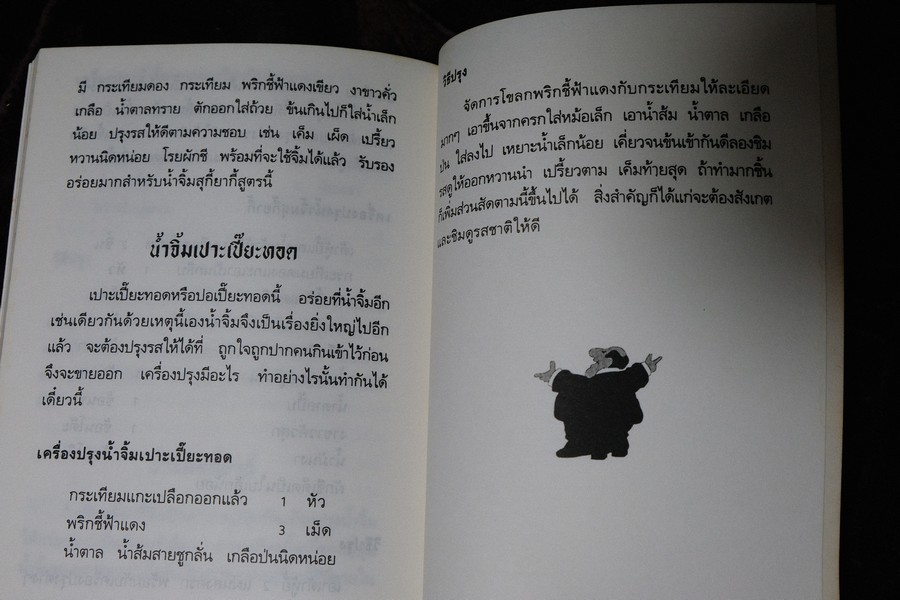 มี กระเทียมดอง กระเทียม พริกชี้ฟ้าแดงเขียว งาขาวคั่ว
เกลือ น้ำตาลทราย ตักออกใส่ถ้วย ข้นเกินไปก็ใส่น้ำเล็ก
น้อย ปรุงรสให้ดีตามความชอบ เช่น เค็ม เผ็ด เปรี้ยว
หวานนิดหน่อย โรยผักชี พร้อมที่จะใช้จิ้มได้แล้ว รับรอง
อร่อยมากสำหรับน้ำจิ้มสุกี้ยากี้สูตรนี้
น้ำจิ้มเปาะเปี๊ยะทอด
เปาะเปี๊ยะทอดหรือปอเปี๊ยะทอดนี้ อร่อยที่น้ำจิ้มอีก
เช่นเดียวกันด้วยเหตุนี้เองน้ำจิ้มจึงเป็นเรื่องยิ่งใหญ่ไปอีก
แล้ว จะต้องปรุงรสให้ได้ที่ ถูกใจถูกปากคนกินเข้าไว้ก่อน
จึงจะขายออก เครื่องปรุงมีอะไร ทำอย่างไรนั้นทำกันได้
เดี๋ยวนี้
เครื่องปรุงน้ำจิ้มเปาะเปี๊ยะทอด
กระเทียมแกะเปลือกออกแล้ว 1 หัว
พริกชี้ฟ้าแดง 3 เม็ด
น้ำตาล น้ำส้มสายชูกลั่น เกลือป่นนิดหน่อย
วิธีปรุง
จัดการโขลกพริกชี้ฟ้าแดงกับกระเทียมให้ละเอียด
มากๆ เอาขึ้นจากครกใส่หม้อเล็ก เอาน้ำส้ม น้ำตาล เกลือ
ป่น ใส่ลงไป เหยาะน้ำเล็กน้อย เคี่ยวจนข้นเข้ากันดีลองชิม
รสดูให้ออกหวานนำ เปรี้ยวตาม เค็มท้ายสุด ถ้าทำมากขึ้น
ก็เพิ่มส่วนสัดตามนี้ขึ้นไปได้ สิ่งสำคัญก็ได้แก่จะต้องสังเกต
และชิมดูรสชาติให้ดี